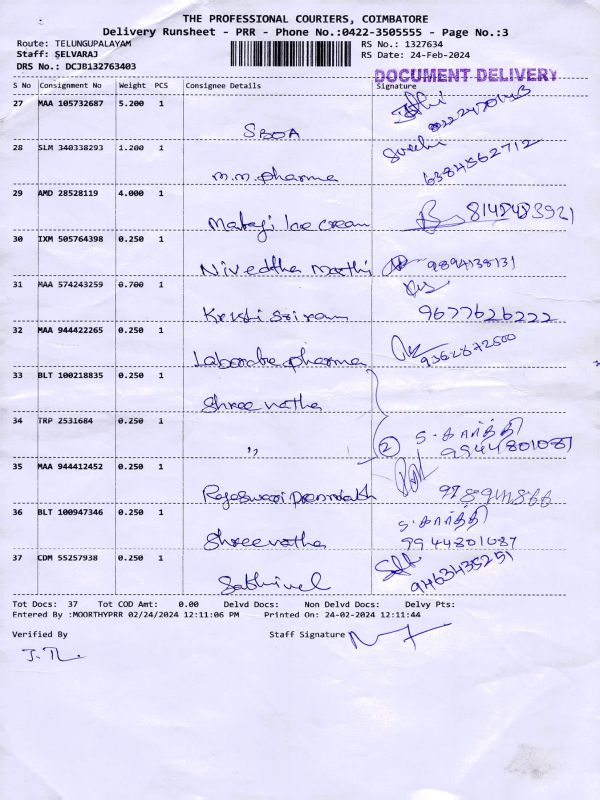 THE PROFESSIONAL COURIERS, COIMBATORE
Delivery Runsheet - PRR - Phone No.:0422-3505555 - Page No.:3
Route: TELUNGUPALAYAM RS No.: 1327634
Staff: SELVARAJ RS Date: 24-Feb-2024
DRS No.: DCJB132763403
DOCUMENT DELIVERY
S No Consignment No Weight PCS Consignee Details Signature
27 MAA 105732687 5.200 1
SBOA
28 SLM 340338293 1.200 1
m.m. pharma 6384562712
29 AMD 28528119 4.000 1
Mataji Ice cream 8148483921
30 IXM 505764398 0.250 1
Niveditha Moothi 9894138131
31 MAA 574243259 0.700 1
Kristi Sriram 9677626222
32 MAA 944422265 0.250 1
Laborate pharma 9362872500
33 BLT 100218835 0.250 1
Shree natha
34 TRP 2531684 0.250 1
" 2 S. கார்த்தி
9944801087
35 MAA 944412452 0.250 1
Rajeswari
36 BLT 100947346 0.250 1
S. கார்த்தி
Shree natha 9944801087
37 CDM 55257938 0.250 1
Sathivel 9463435251
Tot Docs: 37 Tot COD Amt: 0.00 Delvd Docs: Non Delvd Docs: Delvy Pts:
Entered By :MOORTHYPRR 02/24/2024 12:11:06 PM Printed On: 24-02-2024 12:11:44
Verified By Staff Signature